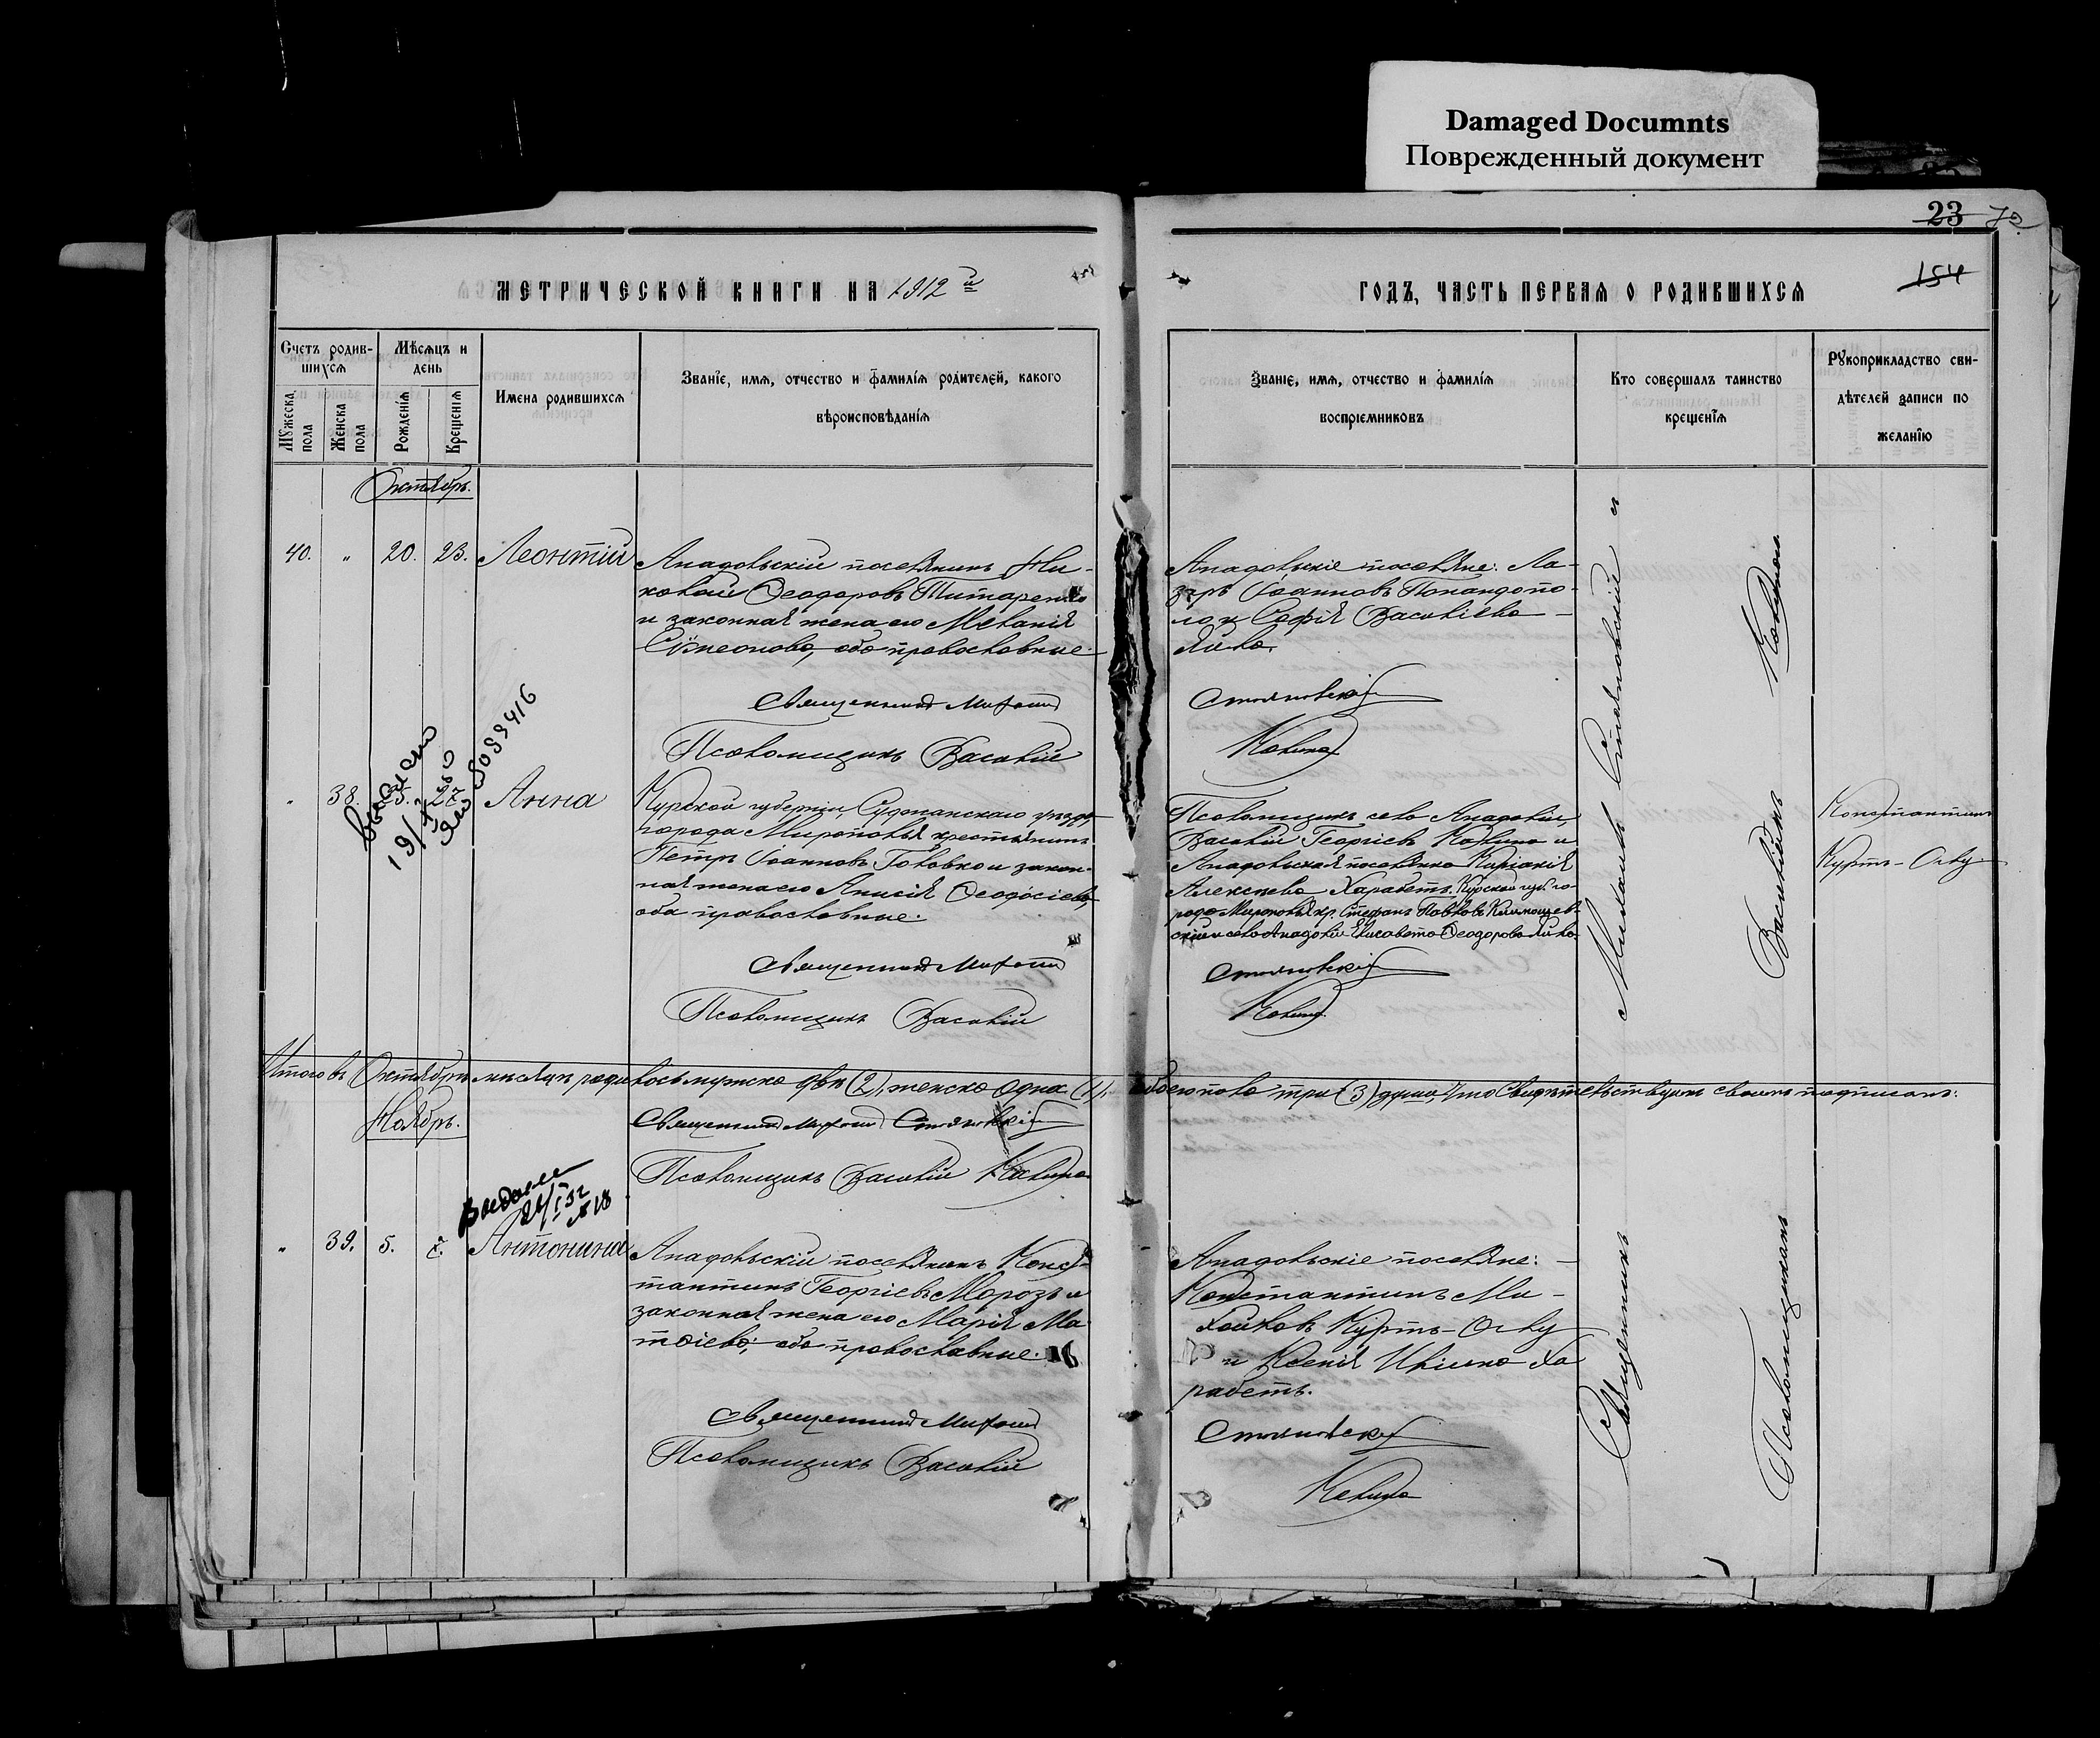 Damaged Documnts
Поврежденный документ
23
154
МЕТРИЧЕСКОЙ КНИГИ НА 1912 й
ГОДЪ, ЧАСТЬ ПЕРВАЯ О РОДИВШИХСЯ
Счетъ родив-
шихся
Мѣсяцъ и
день
Мужеска
пола
Женска
пола
Рожденія
Крещенія
Имена родившихся
Званіе, имя, отчество и фамилія родителей, какого
вѣроисповѣданія
Званіе, имя, отчество и фамилія
воспріемниковъ
Кто совершалъ таинство
крещенія
Рукоприкладство сви-
дѣтелей записи по
желанію
Октябрь.
40. „ 20. 23. Леонтій
Анадольскій поселянинъ Ни-
колай Ѳеодоровъ Титаренко
и законная жена его Меланія
Сѵмеонова, оба православные.
Священникъ Михаил
Псаломщикъ Василій
Анадольскіе поселяне: Ла-
зарь Іоанновъ Попандопо-
ло и Софія Василіева
Яйла.
Стояновскій
Калина
„ 38. 25. 27. Анна
Курской губерніи, Суджанскаго уѣзда
города Мирополья крестьянинъ
Петръ Іоанновъ Головко и закон-
ная жена его Анисія Ѳеодосіева,
оба православные.
Священникъ Михаил
Псаломщикъ Василій
Псаломщикъ села Анадоліи,
Василій Георгіевъ Калина и
Анадольская поселянка Киріакія
Алексѣева Харабетъ, Курской губ. го-
рода Мирополья кр. Стефанъ Павловъ Климашев-
скій и села Анадоліи Елисавета Ѳеодорова Яйла.
Стояновскій
Калина
Константинъ
Куртъ-Оглу
Итого въ Октябрѣ мѣсяцѣ родилось мужска двѣ (2), женска одна (1), обоего пола три (3) души Что Свидѣтельствуемъ своимъ подписомъ:
Ноябрь.
Священникъ Михаил Стояновскій
Псаломщикъ Василій Калина
Выдали
„ 39. 5. Антонина
Анадольскій поселянинъ Конс-
тантинъ Георгіевъ Морозъ и
законная жена его Марія Ма-
тѳіева, оба православные.
Священникъ Михаил
Псаломщикъ Василій
Анадольскіе поселяне:
Константинъ Ми-
хайловъ Куртъ-Оглу
и Ксенія Ильина Ха
рабетъ.
Стояновскій
Калина
Священникъ Михаилъ Стояновскій и
Псаломщикъ Василій Калина.